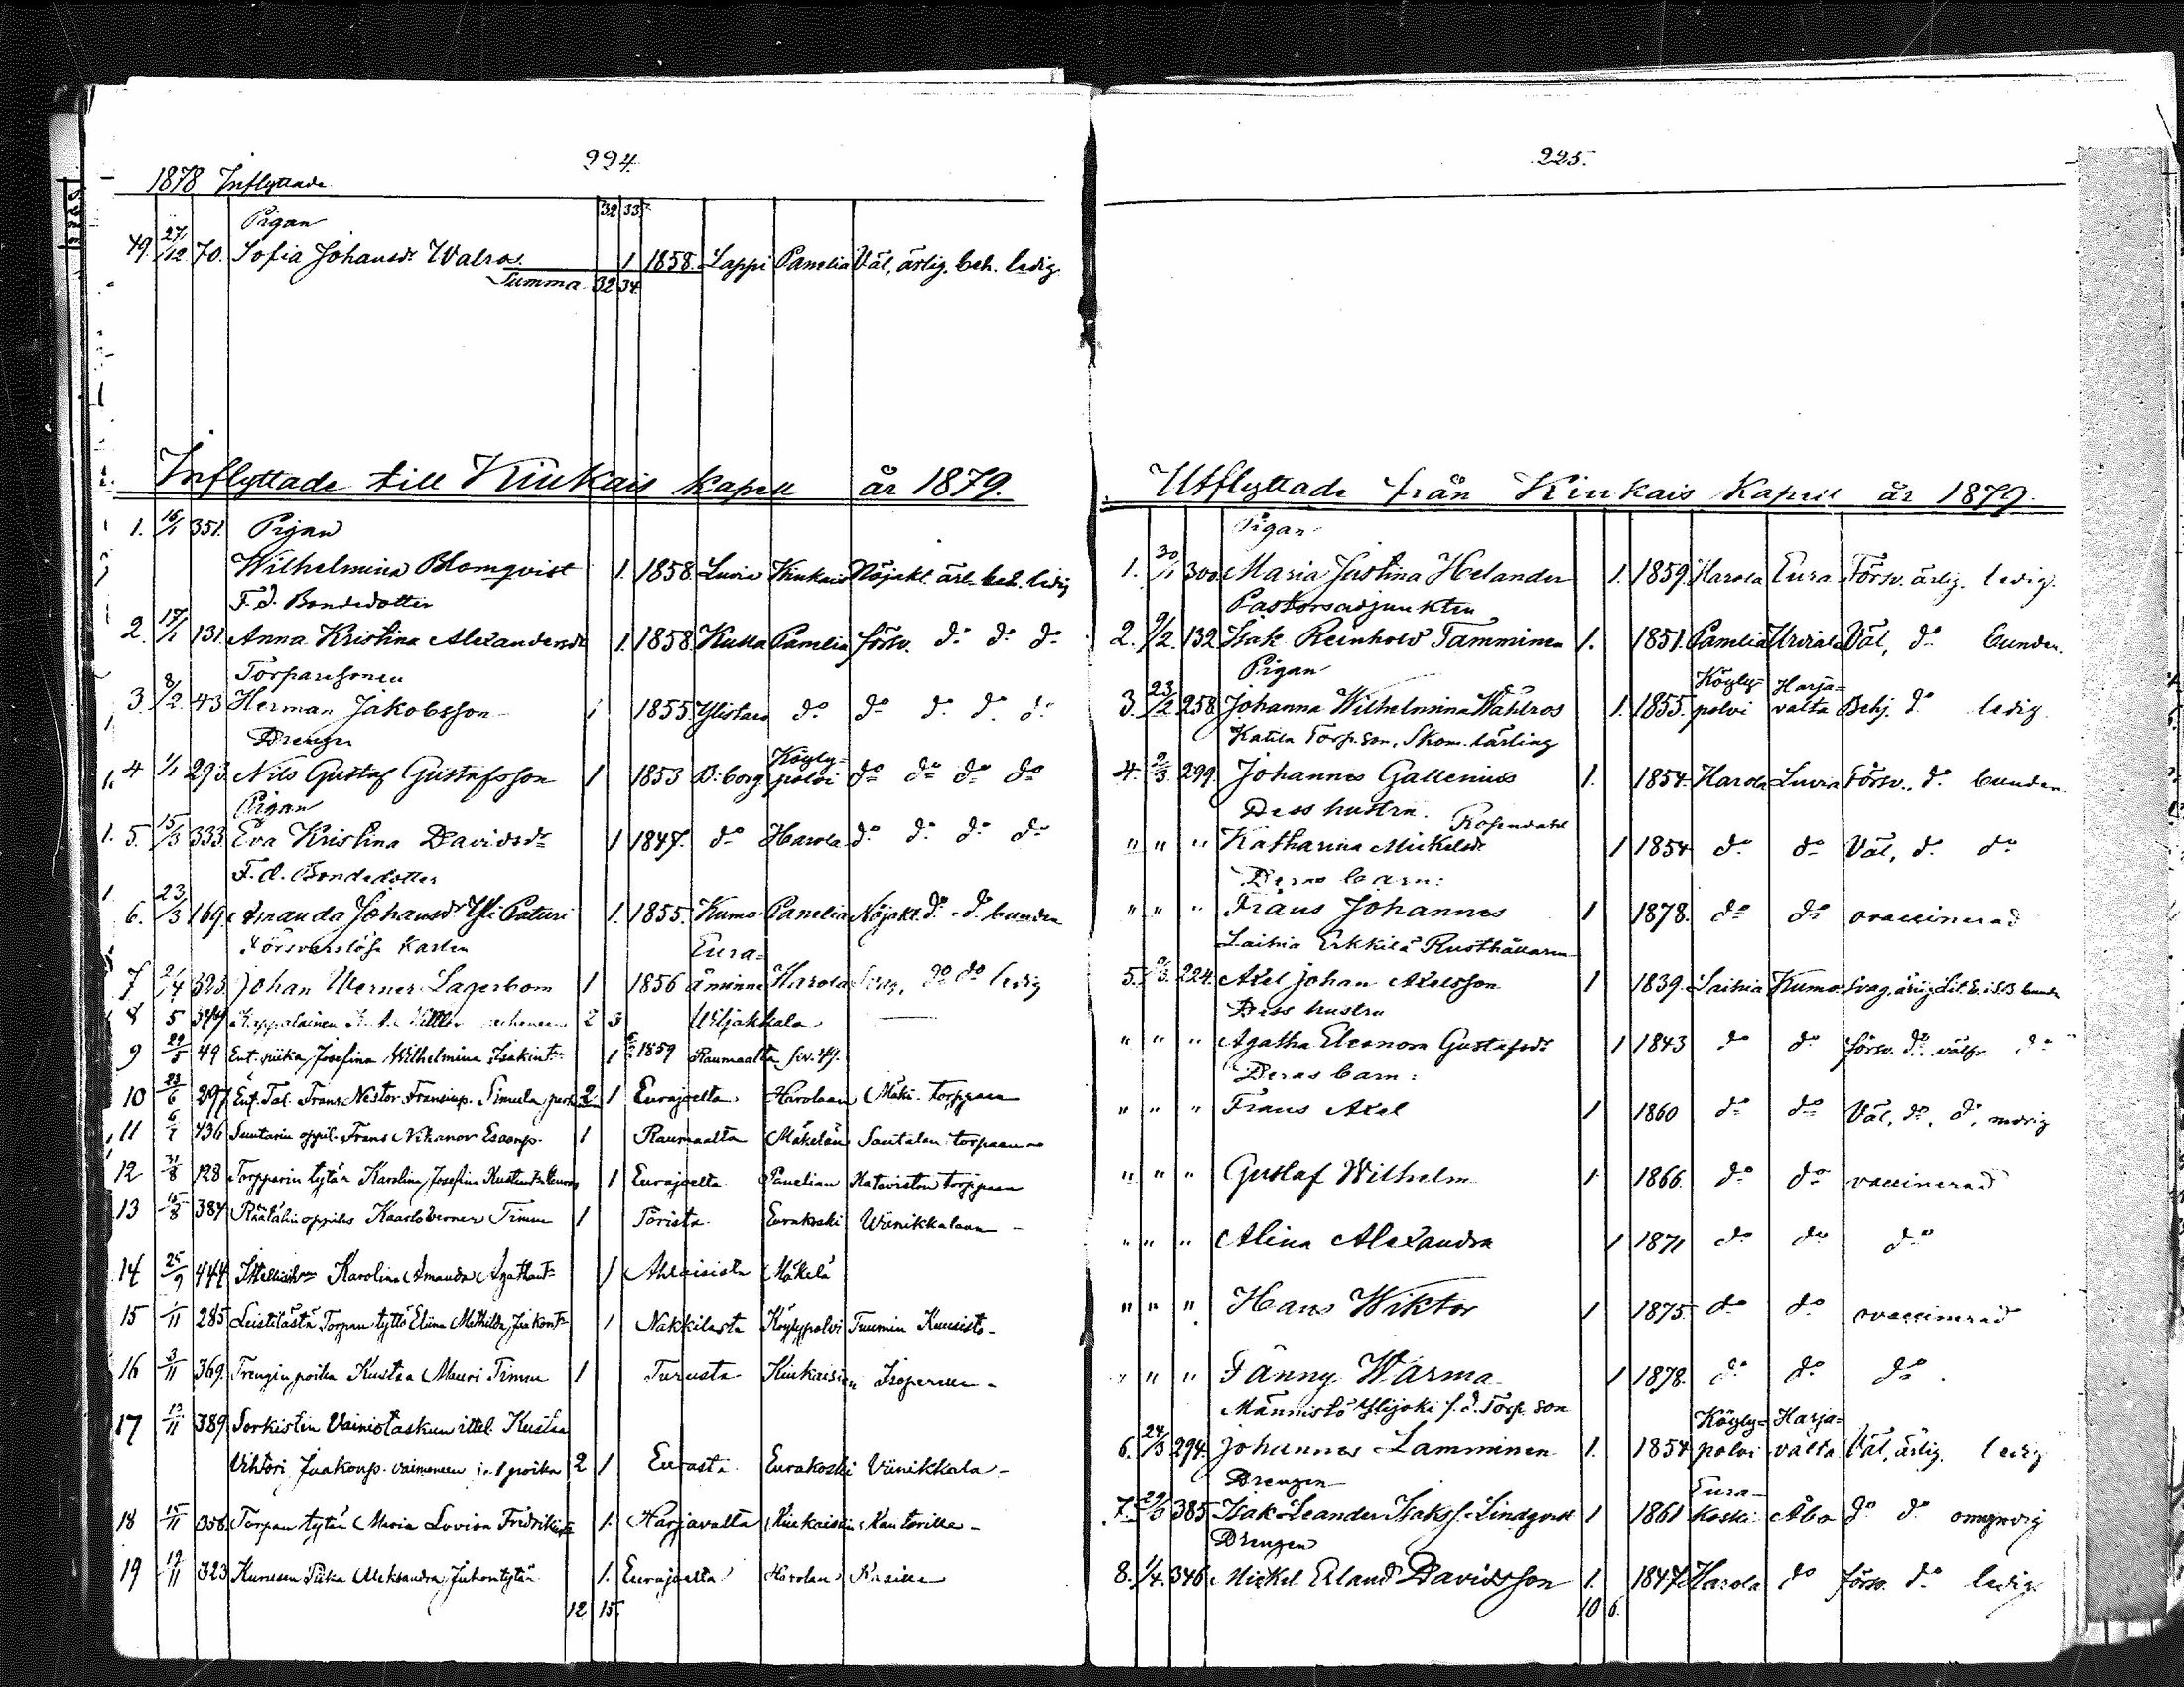 224.
1878 Inflyttade
32 33.
Pigan
49. 27/12 70. Sofia Johansdr Walros. 1 1858. Lappi Panelia Väl, ärlig. beh. ledig.
Summa 32 34.
Inflyttade till Kiukais kapell år 1879.
1. 16/1 351. Pigan
Wilhelmina Blomqvist 1. 1858. Luvia Kiukais Nöjakt. ärl. beh. ledig
F.d. Bondedotter
2. 17/1 131. Anna Kristina Alexandersdr 1. 1858. Kulla Panelia försv. do do do
Torparesonen
3. 8/2 43 Herman Jakobsson 1 1855. Ylistaro do do do do
Drengen
4 1/1 293. Nils Gustaf Gustafsson 1 1853 B:borg Köyly-polvi do do do do
Pigan
5. 15/3 333. Eva Kristina Davidsdr 1 1847. do Harola do do do do
F.d. Bondedotter
6. 23/3 169. Amanda Johansdr Yli Paturi 1. 1855. Kumo Panelia Nöjakt. do do bunden
Försvarslöse Karlen Eura-
7 2/4 323. Johan Werner Lagerbom 1 1856 åminne Harola do do ledig
8 5 344 2 3 Uljakkala
9 29/5 49 Ent. piika Josefina Wilhelmina Isakintr 1 1859 Raumaalta siv. 49.
10 23/6 297 Ent. Tal. Frans Nestor Fransinp. Simula 2 1 Eurajoelta Harolaan Mäki-torppaan
11 6/7 436 Suutarin oppil. Frans Nikanor Esaanp. 1 Raumaalta Mäkelän Santalan torpaan
12 31/8 128 Torpparin tytär Karolina Josefina 1 Eurajoelta Panelian Kataviston torppaan
13 15/8 384 Räätälin oppilas Kaarlo Verner Timme 1 Pöristä Eurakoski Wiinikkalaan
14 25/9 444 Karolina Amanda Agathantr 1 Ahlaisista Mäkelä
15 1/11 285 Leistilästä Torpan tyttö Eliina Mathilda Jaakontr 1 Nakkilasta Köylypolvi Tuumin Kuusisto
16 3/11 369. Trengin poika Kustaa Mauri Timme 1 Turusta Kiukaisiin
17 12/11 389 Sorkistin Vainiotaskun ittel. Kustaa
Vihtori Jaakonp. vaimoneen ja 1 poika 2 1 Eurasta Eurakoski Viinikkala
18 15/11 358. Torpan tytär Maria Lovisa 1. Harjavalta Kiukaisiin Kanttorille
19 19/11 323 Piika Aleksandra Juhontytär 1. Eurajoelta Harolan
12 15.
225.
Utflyttade från Kiukais Kapell år 1879.
Pigan
1. 30/1 300. Maria Justina Helander 1. 1859. Harola Eura Försv. ärlig. ledig.
Pastorsadjunkten
2. 9/2. 132. Isak Reinhold Tamminen 1. 1851. Panelia Urdiala Väl, do bunden.
Pigan Köyly- Harja-
3. 23/2 258. Johanna Wilhelmina Wahlros 1. 1855. polvi valta Behj. do ledig
Katila Torp. son, Skom. lärling
4. 2/3. 299. Johannes Gallenius 1. 1854. Harola Luvia Försv. do bunden.
Dess hustru. Rosendahl
" " " Katharina Mickelsdr 1 1854 do do Väl, do do
Deras barn:
" " " Frans Johannes 1 1878. do do ovaccinerad
Laihia Erkkilä Rusthållaren
5. 9/3. 224. Axel Johan Axelsson 1 1839. Laihia Kumo Svag, ärlig
Dess hustru
" " " Agatha Eleonora Gustafsdr 1 1843 do do försv. do välfr. do
Deras barn:
" " " Frans Axel 1 1860 do do Väl, do, do, movig
" " " Gustaf Wilhelm 1 1866. do do vaccinerad
" " " Alina Alexandra 1 1871 do do do
" " " Hans Wiktor 1 1875. do do ovaccinerad
" " " Fanny Warma 1 1878. do do do
Männistö Ylijoki f.d. Torp. son Köyly- Harja-
6. 24/3 294. Johannes Lamminen 1. 1854 polvi valta Väl, ärlig. ledig
Drengen Eura-
7. 29/3 385 Isak Leander Isakss. Lindqvist 1 1861 koski Åbo do do omyndig
Drengen
8. 1/4. 346 Mickel Erland Davidsson 1. 1847. Harola do försv. do ledig
10 6.